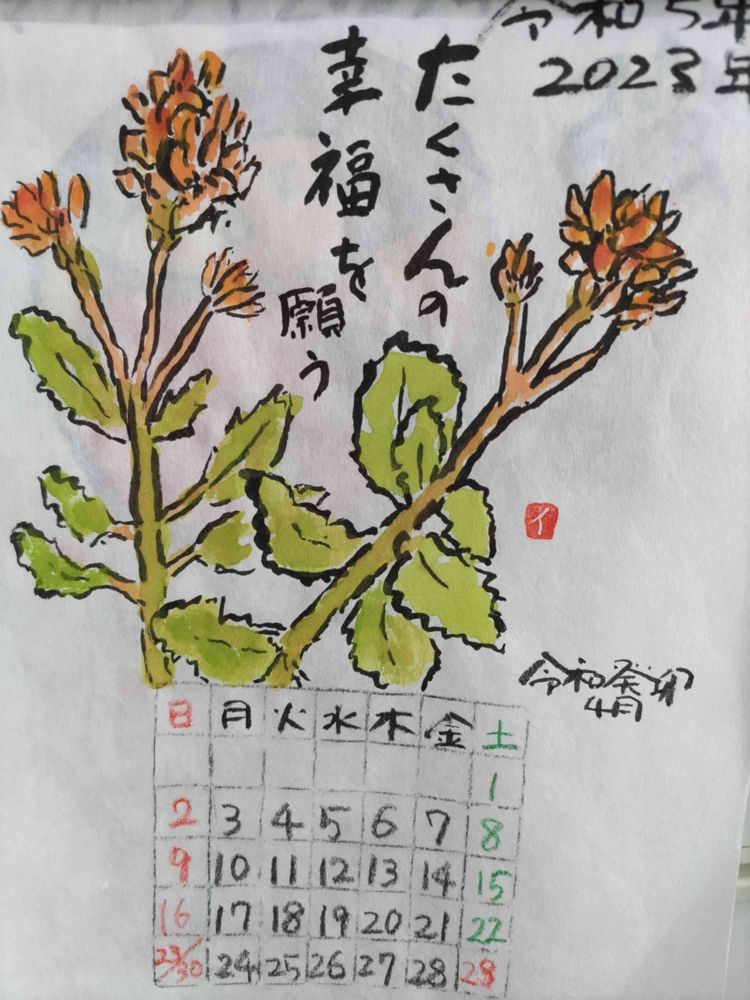 令和5年
2023年
たくさんの
幸福を
願う
イ
令和癸卯
4月
日 月 火 水 木 金 土
1
2 3 4 5 6 7 8
9 10 11 12 13 14 15
16 17 18 19 20 21 22
23/30 24 25 26 27 28 29